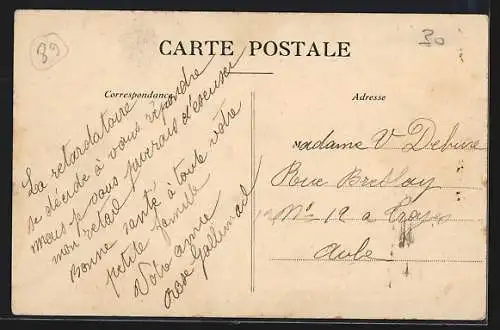 89
30
CARTE POSTALE
Correspondance
Adresse
La retardataire
se décide à vous répondre
mais je vous d'escuser
mon retard
Bonne santé à toute votre
petite famille
Votre amie
Rose Gallimard
Madame V Debure
Rue Breslay
No 12 a Troyes
Aube